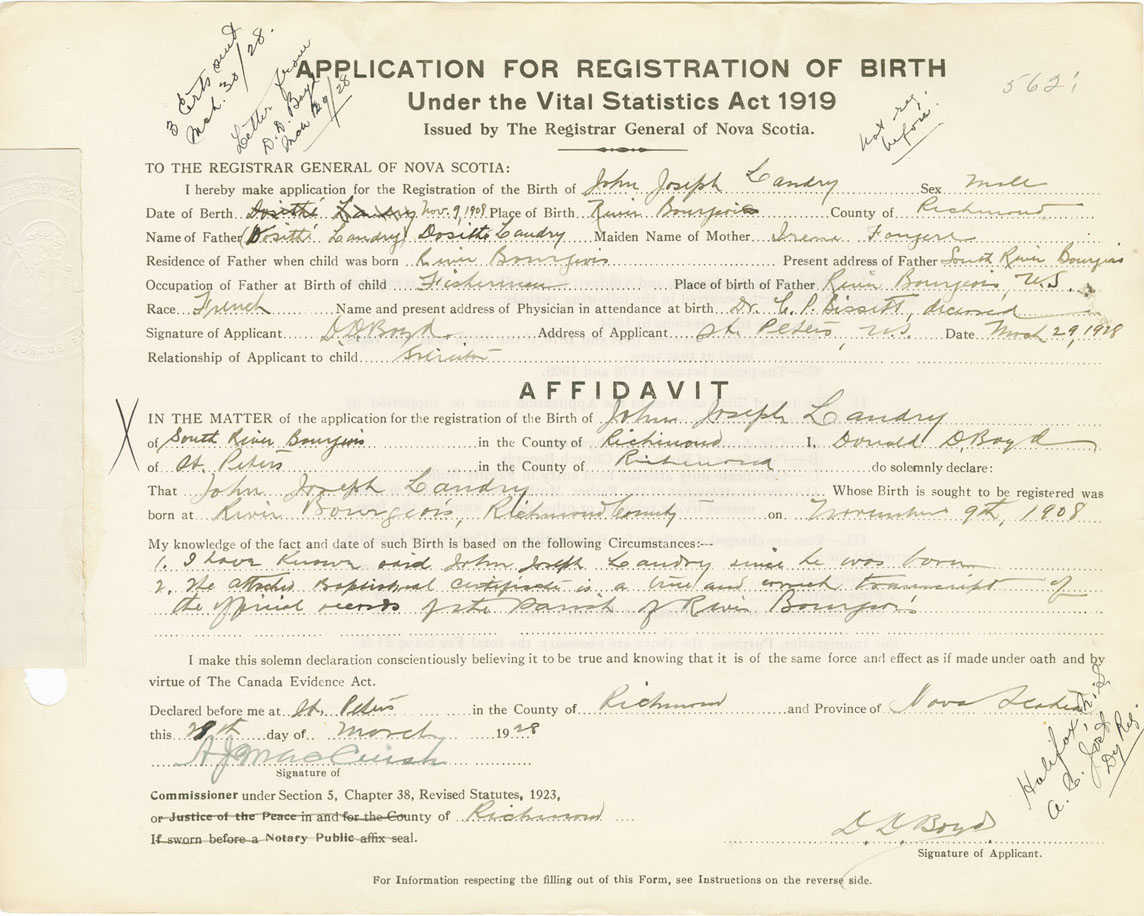 3 Certs sent
Mch. 30/28.
Letter from
D. D. Boyd
Mch 29/28
APPLICATION FOR REGISTRATION OF BIRTH
5621
Under the Vital Statistics Act 1919
Issued by The Registrar General of Nova Scotia.
not reg.
before.
TO THE REGISTRAR GENERAL OF NOVA SCOTIA:
I hereby make application for the Registration of the Birth of John Joseph Landry Sex Male
Date of Berth Dosithé Landry Nov. 9, 1908 Place of Birth River Bourgeois County of Richmond
Name of Father (Dosithé Landry) Dosithe Landry Maiden Name of Mother Irene Fougere
Residence of Father when child was born River Bourgeois Present address of Father South River Bourgeois
Occupation of Father at Birth of child Fisherman Place of birth of Father River Bourgeois, N.S.
Race French Name and present address of Physician in attendance at birth Dr. C. P. Bissett, deceased
Signature of Applicant D.D Boyd Address of Applicant St. Peters, N.S. Date March 29, 1928
Relationship of Applicant to child Solicitor
AFFIDAVIT
X IN THE MATTER of the application for the registration of the Birth of John Joseph Landry
of South River Bourgeois in the County of Richmond I, Donald D. Boyd
of St. Peters in the County of Richmond do solemnly declare:
That John Joseph Landry Whose Birth is sought to be registered was
born at River Bourgeois, Richmond County on November 9th, 1908
My knowledge of the fact and date of such Birth is based on the following Circumstances:—
1. I have known said John Joseph Landry since he was born
2. The attached Baptismal certificate is a true and correct transcript of
the official records of the Parish of River Bourgeois
I make this solemn declaration conscientiously believing it to be true and knowing that it is of the same force and effect as if made under oath and by
virtue of The Canada Evidence Act.
Declared before me at St. Peters in the County of Richmond and Province of Nova Scotia
this 29th day of March 1928
A J MacCuish
Signature of
Commissioner under Section 5, Chapter 38, Revised Statutes, 1923,
or Justice of the Peace in and for the County of Richmond
If sworn before a Notary Public affix seal.
Halifax, N.S.
Dy Reg.
D. D Boyd
Signature of Applicant.
For Information respecting the filling out of this Form, see Instructions on the reverse side.